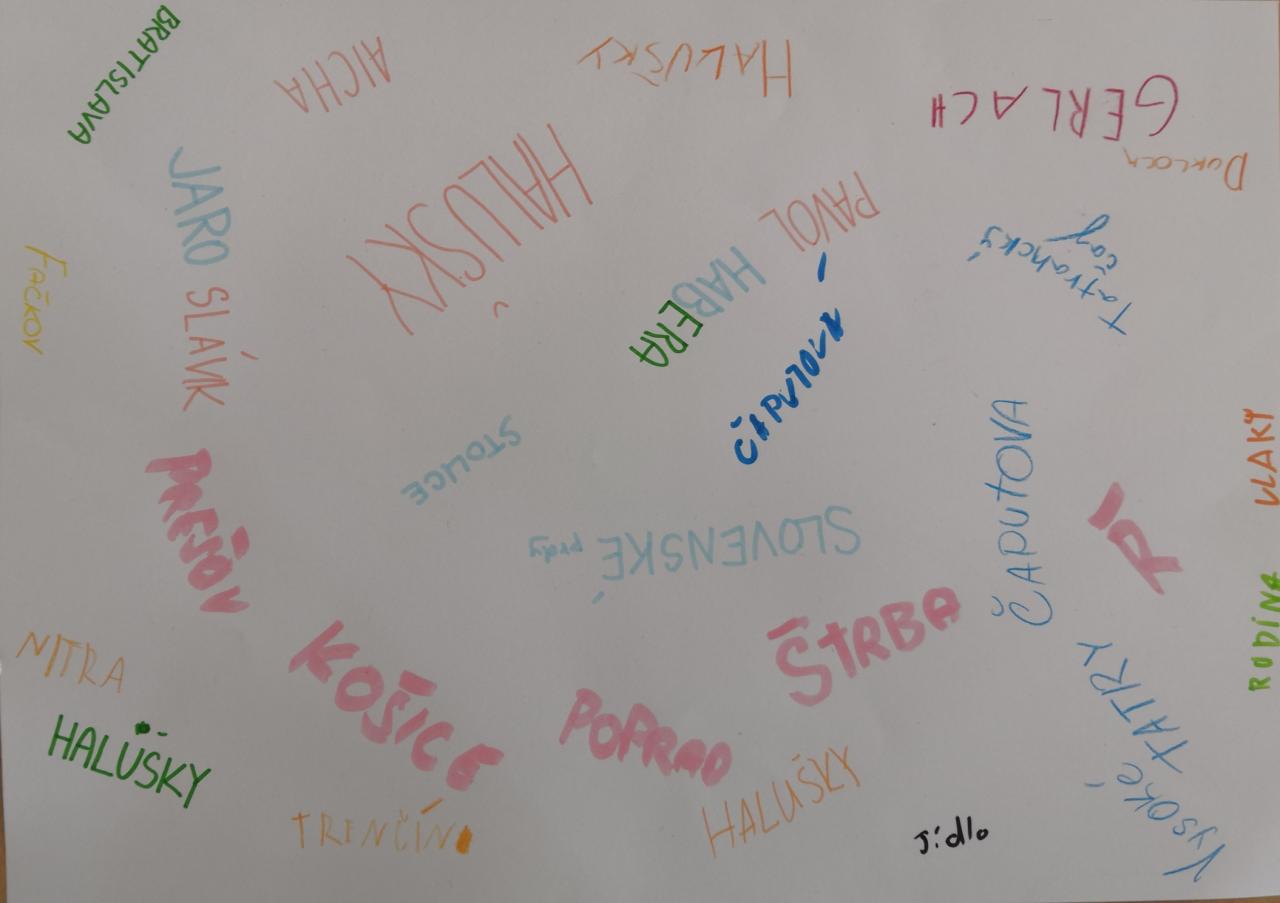 BRATISLAVA
AICHA
HALUŠKY
GERLACH
JARO SLÁVIK
HALUŠKY
PAVOL
HABERA
Tatranský
čaj
FAČKOV
ČAPUTOVÁ
STOLICE
ČAPUTOVA
VLAKY
PREŠOV
SLOVENSKÉ prdy
ŠTRBA
RODINA
NITRA
KOŠICE
POPRAD
VYSOKÉ TATRY
HALUŠKY
HALUŠKY
TRENČÍN
Jídlo